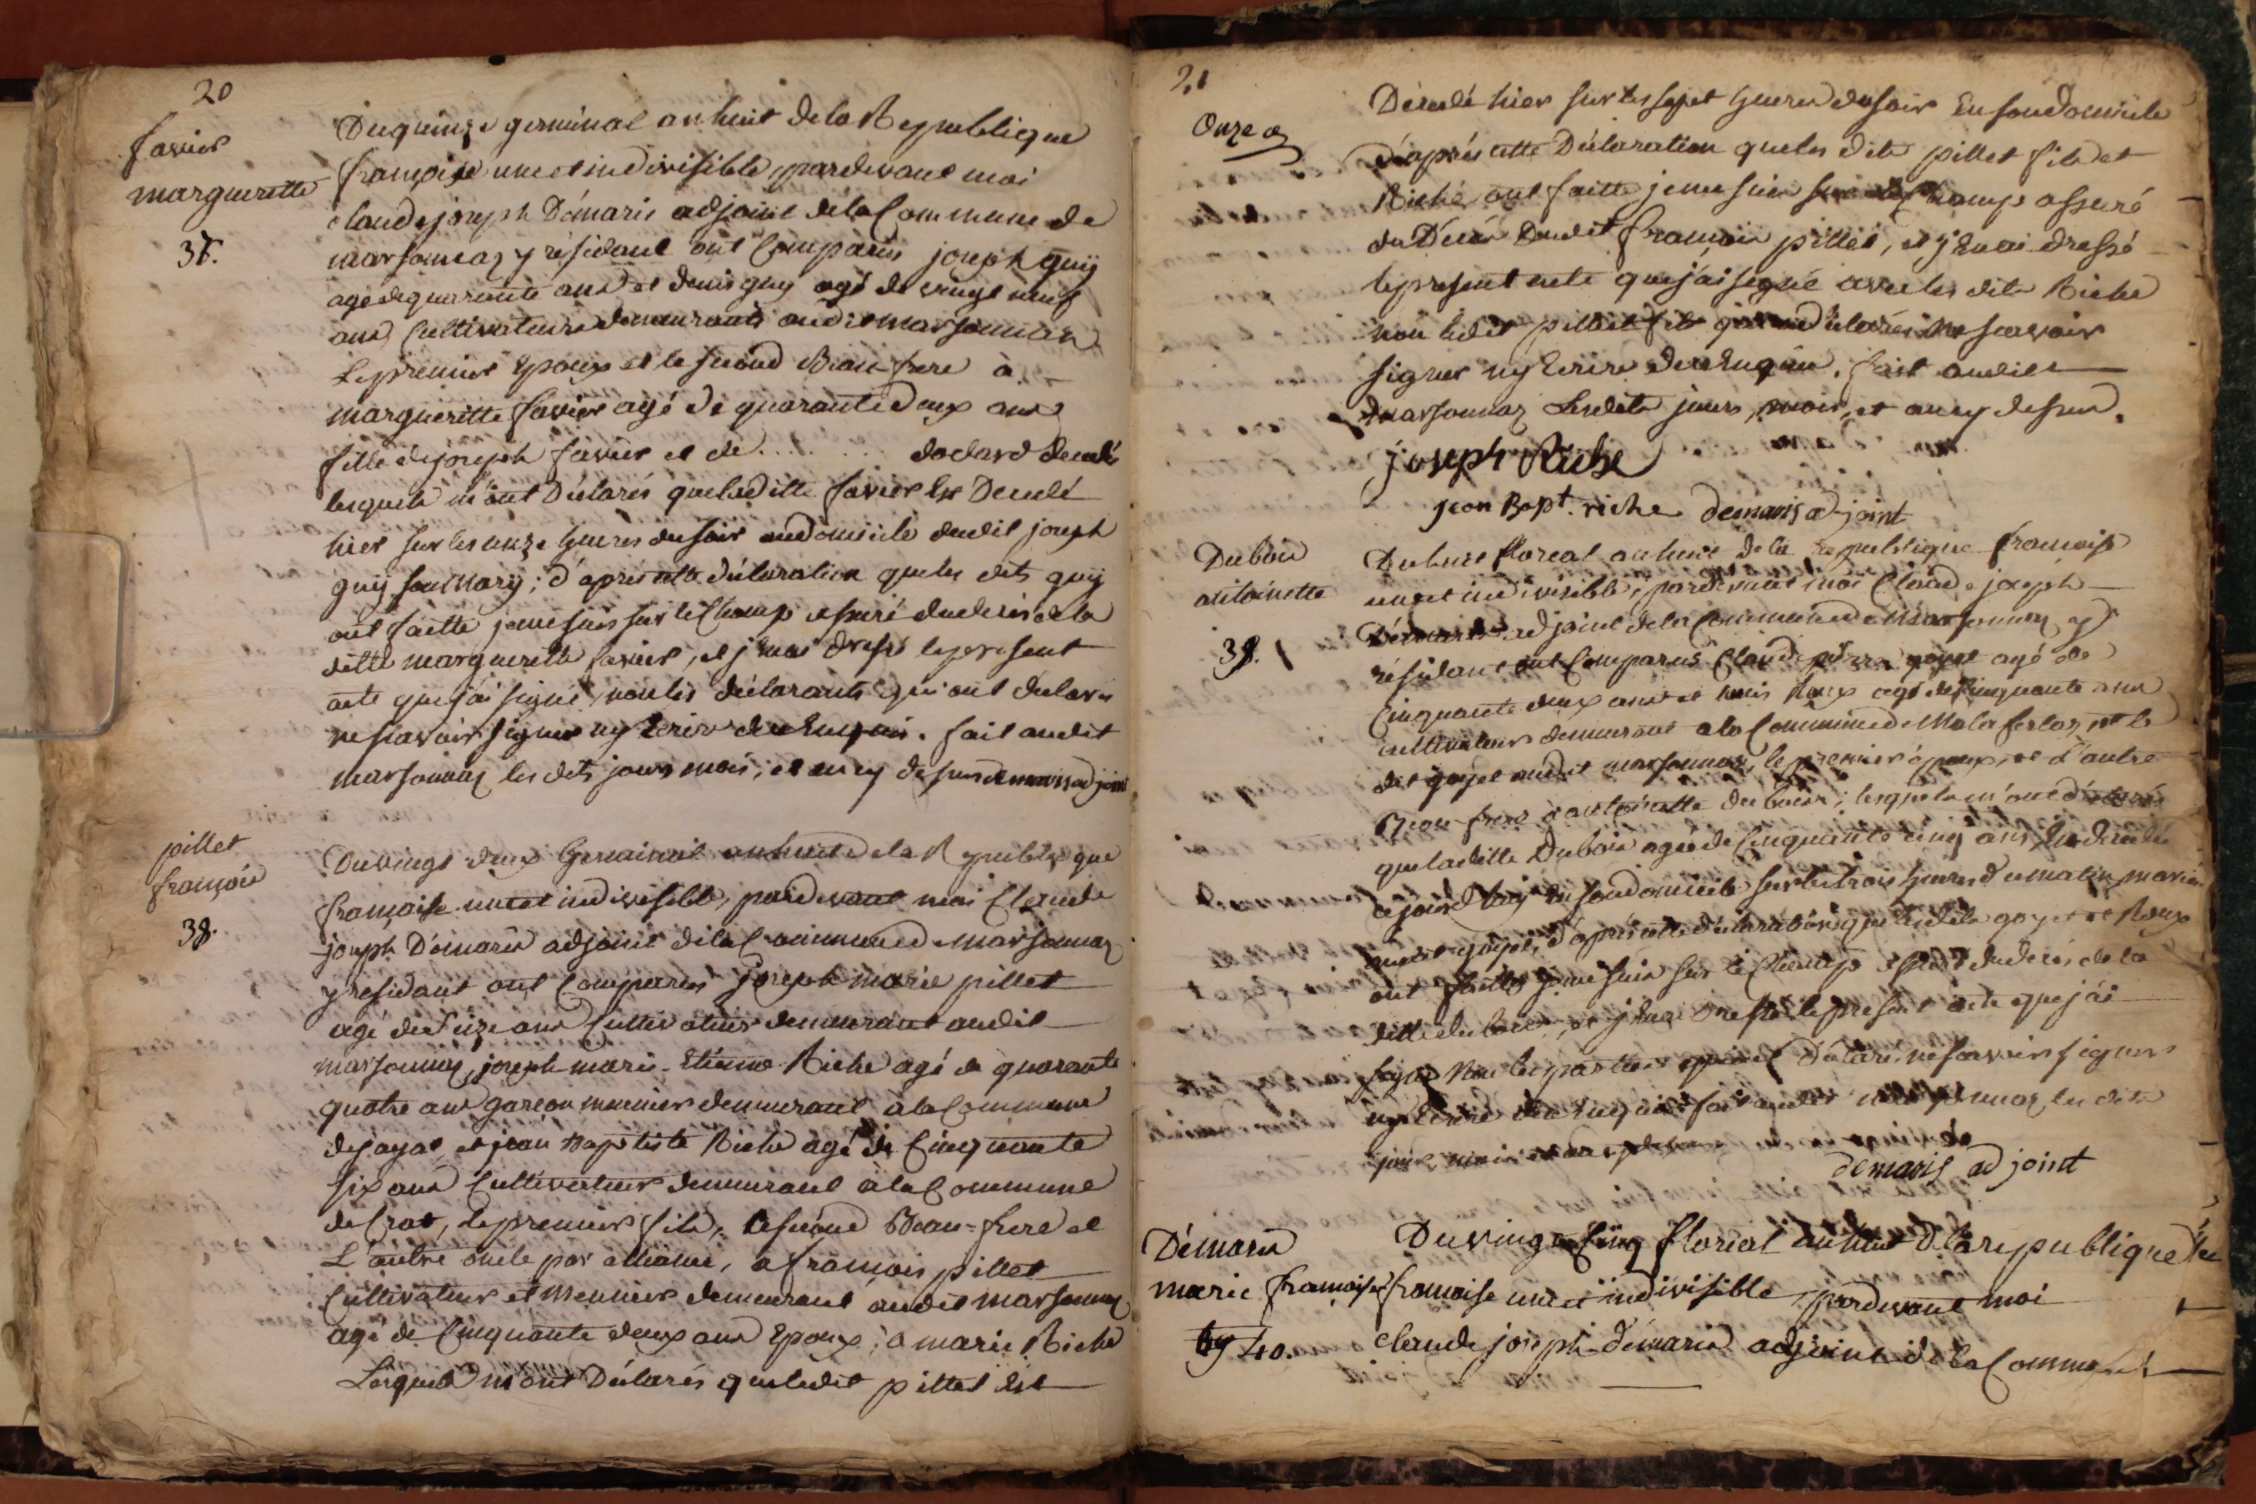 20
favier
marguerette
37.
Du quinze germinal an huit de la Republique
françoise une et indivisible, pardevant moi
Claude joseph Démaris adjoint de la Commune de
marsonnaz y résidant ont Comparus joseph guy
agé de quarante ans et denis guy agé de vingt neuf
ans Cultivateurs demeurants audit marsonnaz
Le premier Epoux et le second Beau-frere à
margueritte favier agé de quarante deux ans
fille de joseph favier et de . . . . . . . . dodard decedé
lesquels m'ont Déclarés que laditte favier Est Decedé
hier sur les onze heures du soir au domicile dudit joseph
guy son mary; d'apres cette déclaration que les dits guy
ont faitte je me suis sur le Champ assuré du deces de la
ditte marguerette favier, et j'en ai dressé le present
acte que j'ai signé, non les déclarants qui ont declarés
ne scavoir signer ny Ecrire de ce Enquis. fait audit
marsonnaz les dits jours mois, et an cy dessus demaris adjoint
pillet
françois
38.
Du vingt deux Germinal an huit de la Republique
françoise une et indivisible, pardevant moi Claude
joseph Démaris adjoint de la Commune de marsonnaz
y residant ont Comparus joseph marie pillet
agé de seize ans Cultivateur demeurant audit
marsonnaz, joseph marie Etienne Riche agé de quarante
quatre ans garçon meunier demeurant à la Commune
de jayat, et jean Baptiste Riche agé de Cinquante
six ans Cultivateur demeurant à la Commune
de Cras, le premier fils, le second Beau-frere et
L'autre oncle par alliance, a françois pillet
Cultivateur et Meunier demeurant audit marsonnaz
agé de Cinquante deux ans Epoux, à marie Riche
Lesquels m'ont Déclarés que ledit pillet Est
21
Onze
Décedé hier sur les sept heures du soir En son domicile
d'après cette Déclaration que les dits pillet fils et
Riche ont faitte je me suis sur le Champ assuré
du Décès Dudit françois pillet, et j'En ai dressé
le present acte que j'ai signé avec les dits Riche
non ledit pillet fils qui a déclarés ne scavoir
signer ny Ecrire de ce Enquis. fait audit
marsonnaz Lesdits jours, mois, et an cy dessus.
joseph Riche
jean Bapt. riche demaris adjoint
Dubois
antoinette
39.
Du huit floreal an huit de la republique françoise
une et indivisible, pardevant moi Claude joseph
Démaris adjoint de la Commune de Marsonnaz y
résidant ont Comparus Claude pierre goyet agé de
Cinquante deux ans et Roux agé de Cinquante ans
cultivateurs demeurant a la Commune de Malafretaz, et le
dit goyet audit marsonnaz, le premier époux, et L'autre
Beau-frere à antoinette dubois; lesquels m'ont déclarés
que laditte Dubois agée de Cinquante cinq ans Est decedé
ce jourd'huy En son domicile sur les trois heures du matin
goyet, d'après cette déclaration que les dits goyet et Roux
ont faitte je me suis sur le Champ assuré du deces de la
ditte dubois, et j'En ai dressé le present acte que j'ai
signé Non les parties qui ont Déclaré ne scavoir signer
ny Ecrire de ce Enquis. fait audit marsonnaz les dits
jour, mois et an cy dessus
demaris adjoint
Démaris
marie françoise
40.
Du vingt Cinq floreal an huit de la republique
francoise une et indivisible, pardevant moi
Claude joseph démaris adjoint de la Commune